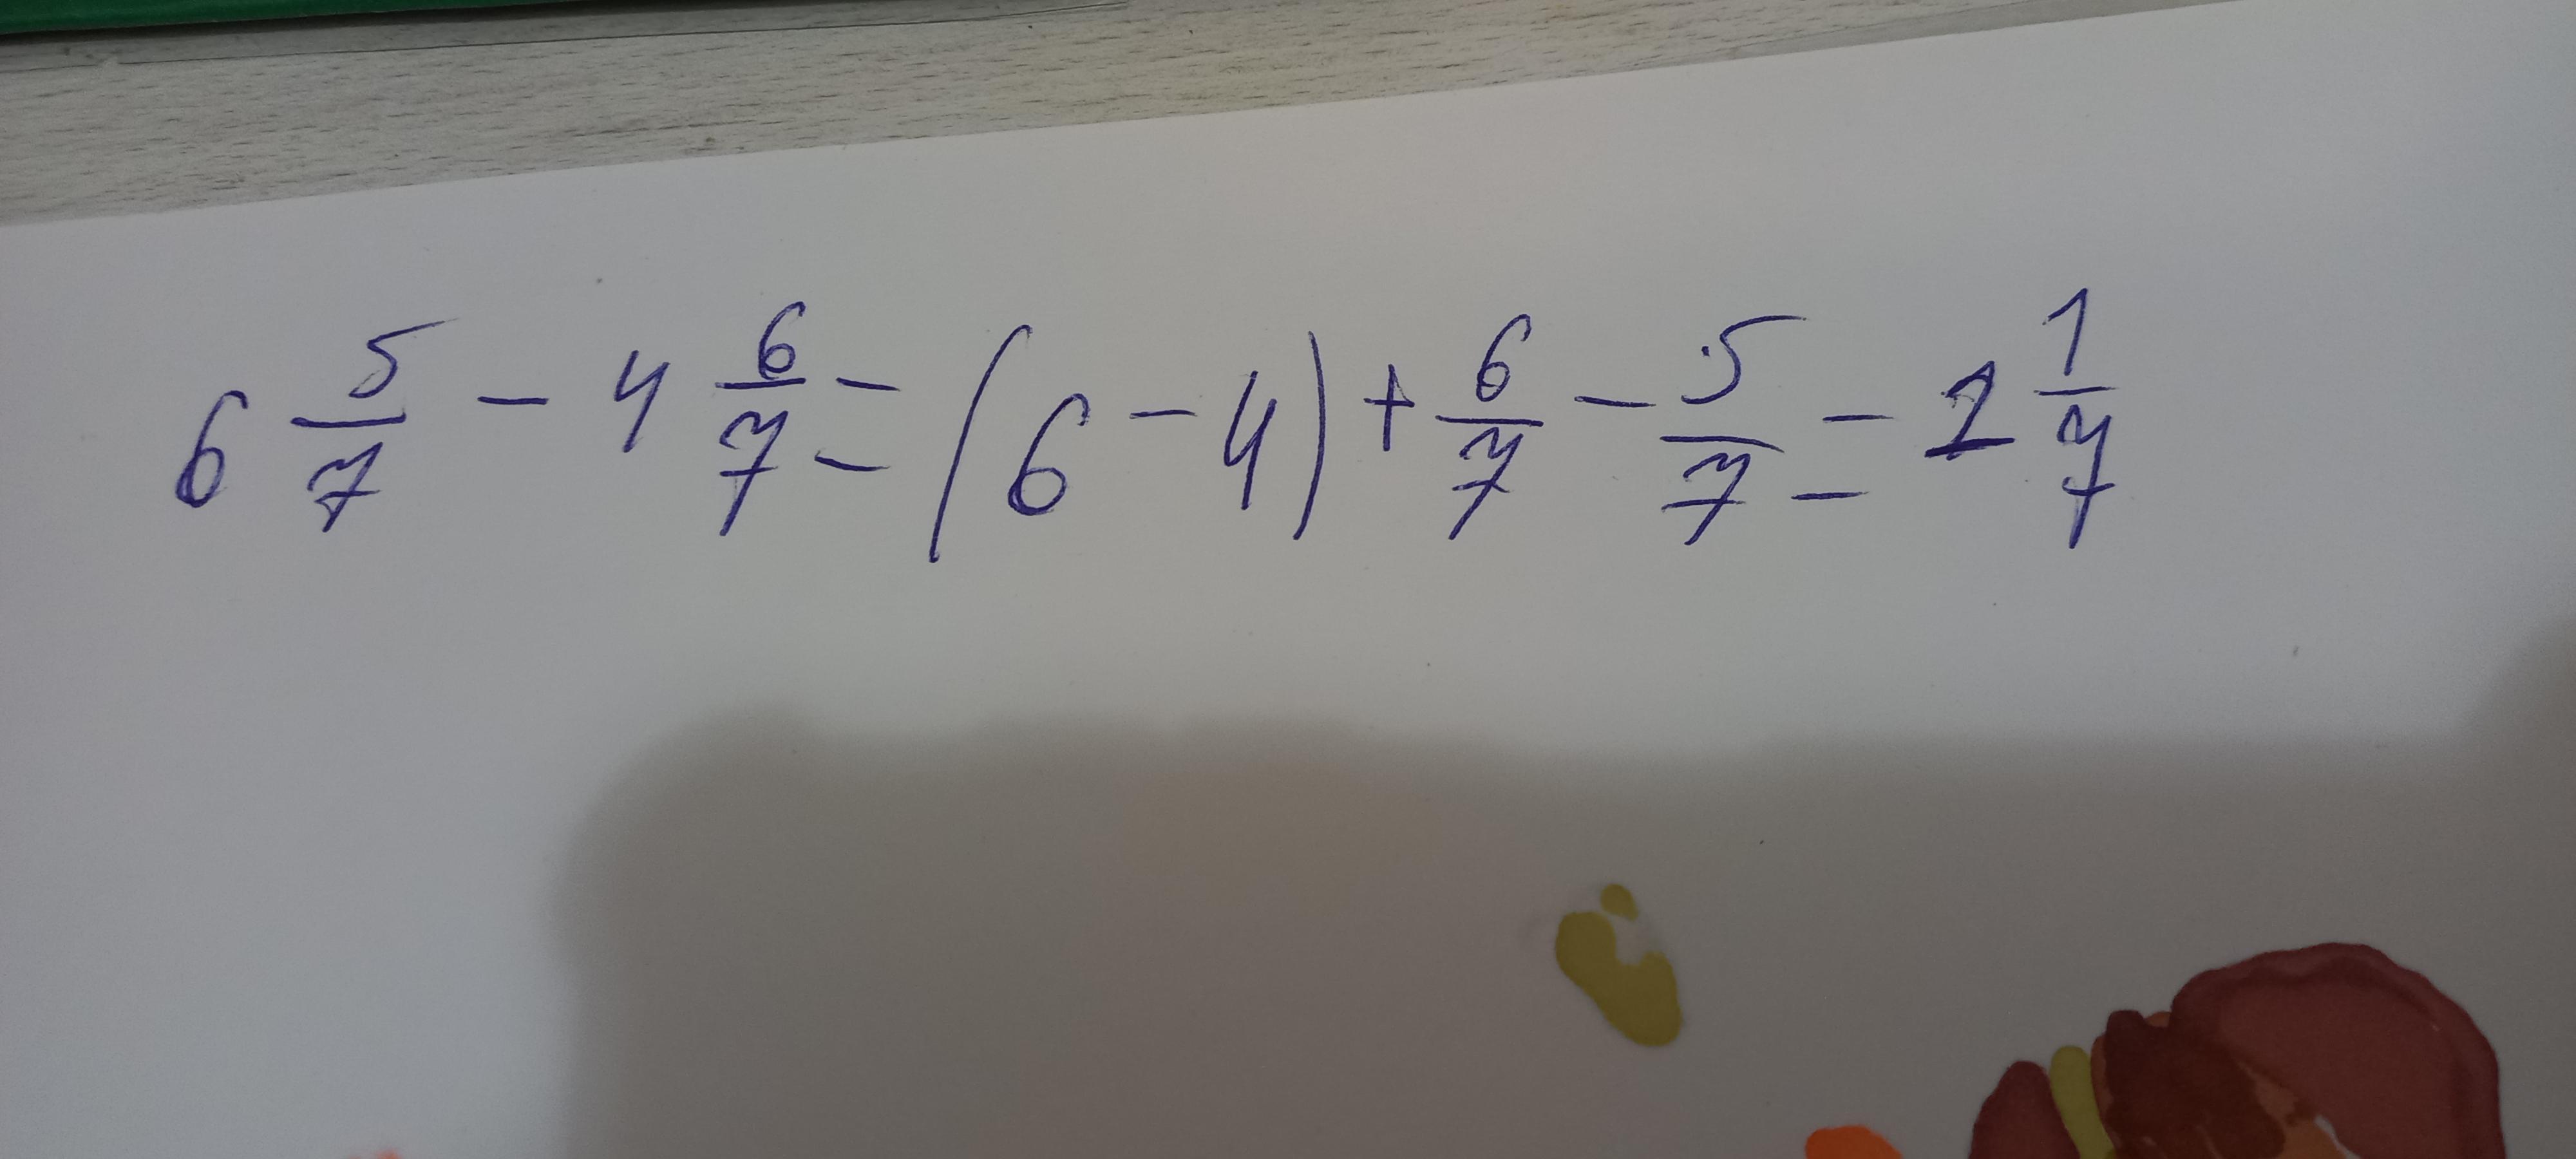 6 5/7 - 4 6/7 = (6 - 4) + 6/7 - 5/7 = 2 1/7